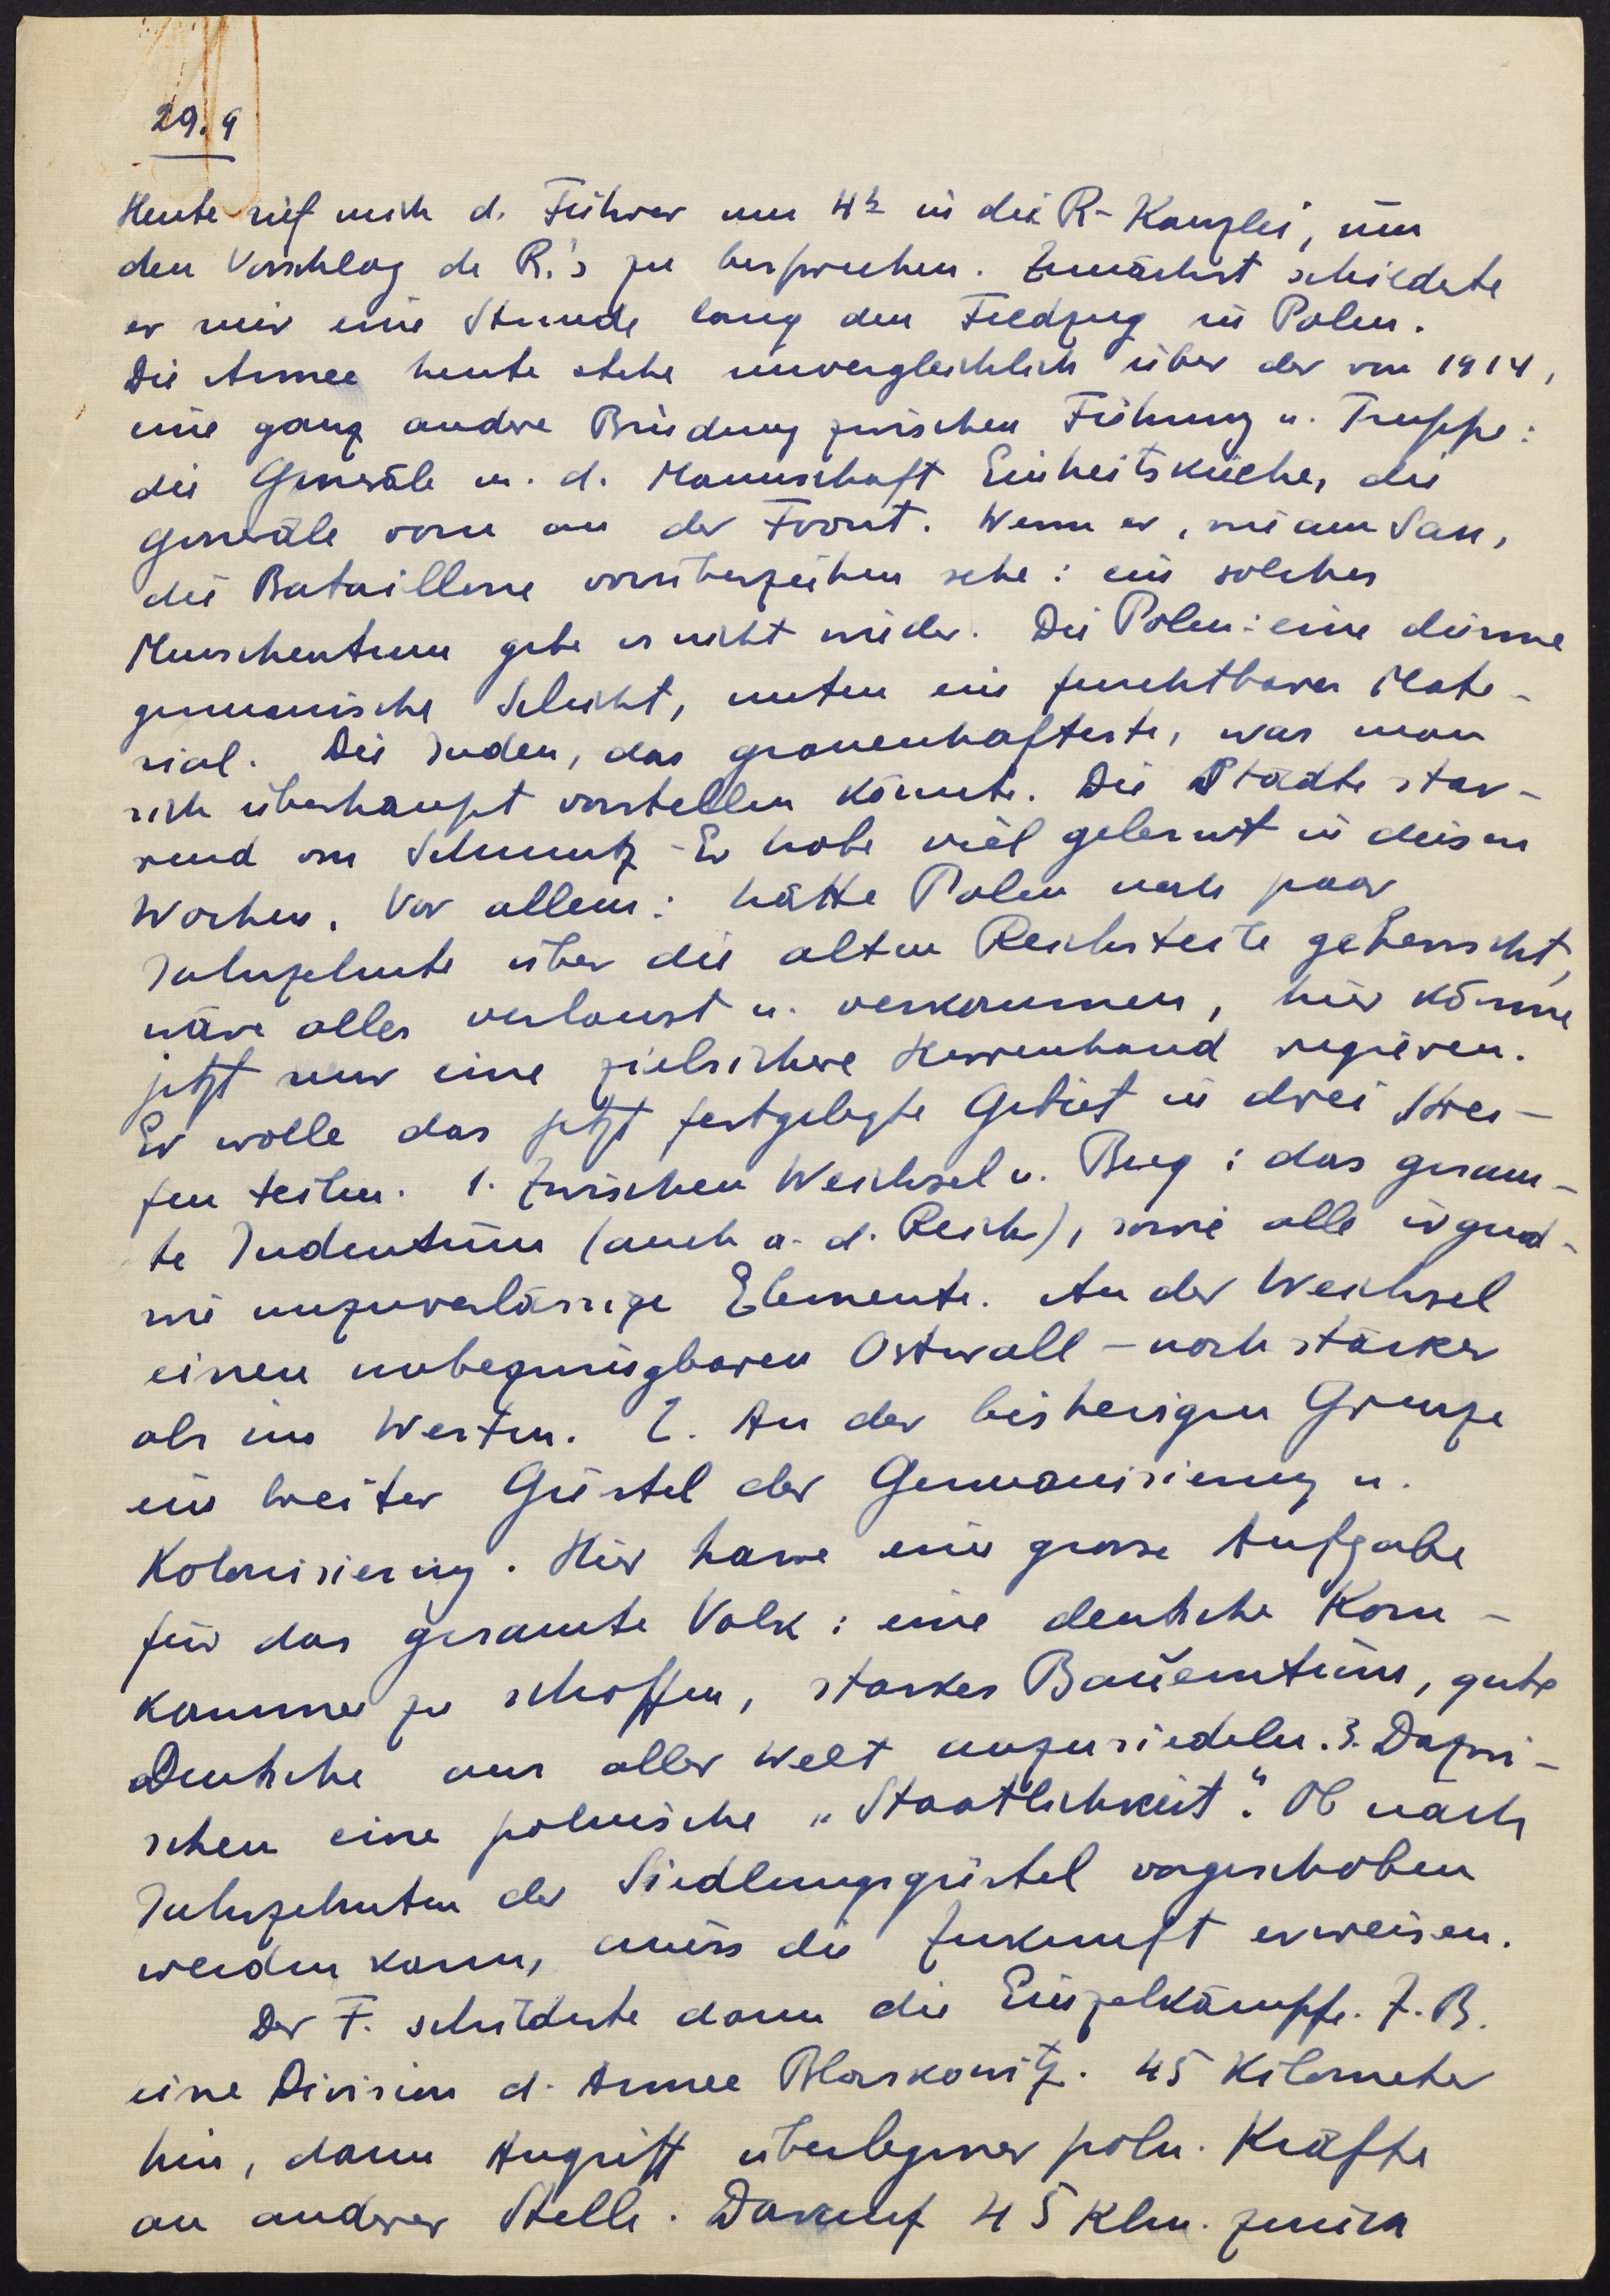 29.9
Heute rief mich d. Führer um 4h in die R-Kanzlei, um
den Vorschlag de R.'s zu besprechen. Zunächst schilderte
er mir eine Stunde lang den Feldzug in Polen.
Die Armee heute stehe unvergleichlich über der von 1914,
eine ganz andere Bindung zwischen Führung u. Truppe:
die Generäle m. d. Mannschaft Einheitsküche, die
Generäle vorn an der Front. Wenn er, wie am San,
die Bataillone vorüberziehen sehe: ein solches
Menschentum gebe es nicht wieder. Die Polen: eine dünne
germanische Schicht, unten ein furchtbares Mate-
rial. Die Juden, das grauenhafteste, was man
sich überhaupt vorstellen könnte. Die Städte star-
rend von Schmutz - Er habe viel gelernt in diesen
Wochen. Vor allem: hätte Polen noch paar
Jahrzehnte über die alten Reichsteile geherrscht,
wäre alles verlaust u. verkommen, hier könne
jetzt nur eine zielsichere Herrenhand regieren.
Er wolle das jetzt festgelegte Gebiet in drei Strei-
fen teilen. 1. Zwischen Weichsel u. Bug: das gesam-
te Judentum (auch a. d. Reich), sowie alle irgend-
wie unzuverlässige Elemente. An der Weichsel
einen unbezwingbaren Ostwall - noch stärker
als im Westen. 2. An der bisherigen Grenze
ein breiter Gürtel der Germanisierung u.
Kolonisierung. Hier harre eine grosse Aufgabe
für das gesamte Volk: eine deutsche Korn-
kammer zu schaffen, starkes Bauerntum, gute
Deutsche aus aller Welt anzusiedeln. 3. Dazwi-
schen eine polnische „Staatlichkeit". Ob nach
Jahrzehnten der Siedlungsgürtel vorgeschoben
werden kann, muss die Zukunft erweisen.
Der F. schilderte dann die Einzelkämpfe. Z. B.
eine Division d. Armee Blaskowitz. 45 Kilometer
hin, dann Angriff überlegener poln. Kräfte
an anderer Stelle. Darauf 45 Klm. zurück